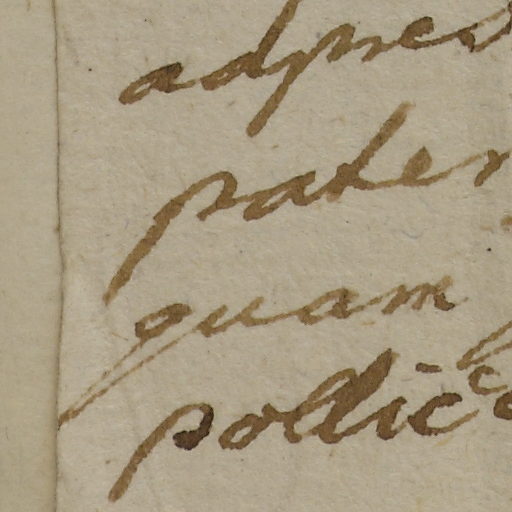 adpres
paten
quam
pollic